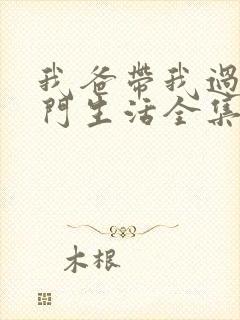 我爸帶我過
門生活全集
木根